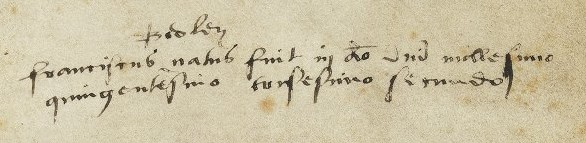 Bedlen
franciscus natus fuit in ao dni millesimo
quingentesimo trisesimo secundo